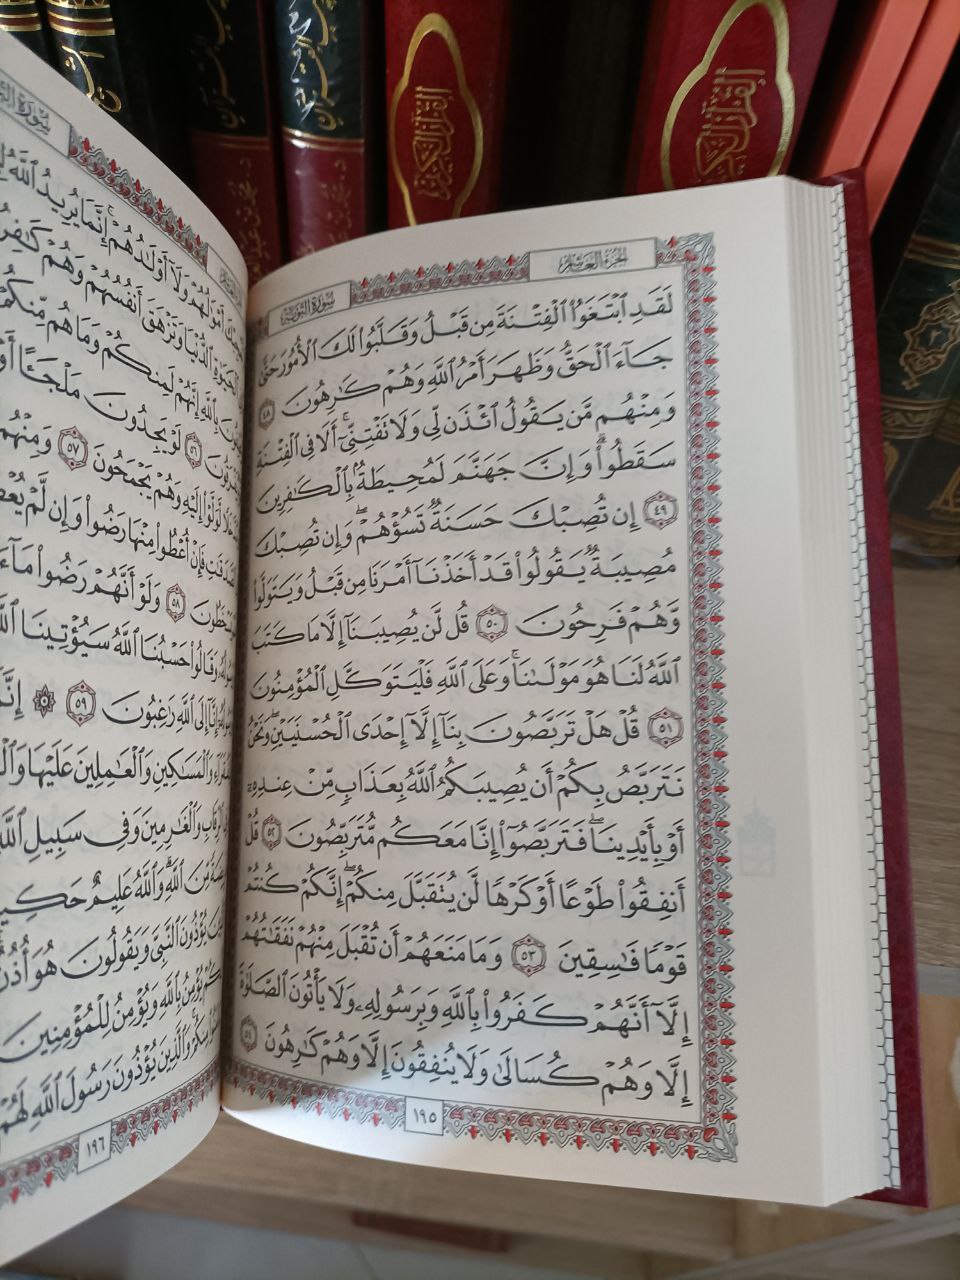 القرآن الكريم
القرآن الكريم
الجزء العاشر
سورة التوبة
لَقَدِ ٱبْتَغَوُا۟ ٱلْفِتْنَةَ مِن قَبْلُ وَقَلَّبُوا۟ لَكَ ٱلْأُمُورَ حَتَّىٰ
جَآءَ ٱلْحَقُّ وَظَهَرَ أَمْرُ ٱللَّهِ وَهُمْ كَٰرِهُونَ ٤٨
وَمِنْهُم مَّن يَقُولُ ٱئْذَن لِّى وَلَا تَفْتِنِّىٓ ۚ أَلَا فِى ٱلْفِتْنَةِ
سَقَطُوا۟ ۗ وَإِنَّ جَهَنَّمَ لَمُحِيطَةٌۢ بِٱلْكَٰفِرِينَ
٤٩ إِن تُصِبْكَ حَسَنَةٌ تَسُؤْهُمْ ۖ وَإِن تُصِبْكَ
مُصِيبَةٌ يَقُولُوا۟ قَدْ أَخَذْنَآ أَمْرَنَا مِن قَبْلُ وَيَتَوَلَّوا۟
وَّهُمْ فَرِحُونَ ٥٠ قُل لَّن يُصِيبَنَآ إِلَّا مَا كَتَبَ
ٱللَّهُ لَنَا هُوَ مَوْلَىٰنَا ۚ وَعَلَى ٱللَّهِ فَلْيَتَوَكَّلِ ٱلْمُؤْمِنُونَ
٥١ قُلْ هَلْ تَرَبَّصُونَ بِنَآ إِلَّآ إِحْدَى ٱلْحُسْنَيَيْنِ ۖ وَنَحْنُ
نَتَرَبَّصُ بِكُمْ أَن يُصِيبَكُمُ ٱللَّهُ بِعَذَابٍ مِّنْ عِندِهِۦٓ
أَوْ بِأَيْدِينَا ۖ فَتَرَبَّصُوٓا۟ إِنَّا مَعَكُم مُّتَرَبِّصُونَ ٥٢ قُلْ
أَنفِقُوا۟ طَوْعًا أَوْ كَرْهًا لَّن يُتَقَبَّلَ مِنكُمْ ۖ إِنَّكُمْ كُنتُمْ
قَوْمًا فَٰسِقِينَ ٥٣ وَمَا مَنَعَهُمْ أَن تُقْبَلَ مِنْهُمْ نَفَقَٰتُهُمْ
إِلَّآ أَنَّهُمْ كَفَرُوا۟ بِٱللَّهِ وَبِرَسُولِهِۦ وَلَا يَأْتُونَ ٱلصَّلَوٰةَ
إِلَّا وَهُمْ كُسَالَىٰ وَلَا يُنفِقُونَ إِلَّا وَهُمْ كَٰرِهُونَ ٥٤
١٩٥
سورة
أَمْوَٰلُهُمْ وَلَآ أَوْلَٰدُهُمْ ۚ إِنَّمَا يُرِيدُ ٱللَّهُ
ٱلدُّنْيَا وَتَزْهَقَ أَنفُسُهُمْ وَهُمْ كَٰفِرُونَ
بِٱللَّهِ إِنَّهُمْ لَمِنكُمْ وَمَا هُم مِّنكُمْ
٥٦ لَوْ يَجِدُونَ مَلْجَـًٔا
لَّوَلَّوْا۟ إِلَيْهِ وَهُمْ يَجْمَحُونَ ٥٧ وَمِنْهُم
فَإِنْ أُعْطُوا۟ مِنْهَا رَضُوا۟ وَإِن لَّمْ
٥٨ وَلَوْ أَنَّهُمْ رَضُوا۟ مَآ
وَقَالُوا۟ حَسْبُنَا ٱللَّهُ سَيُؤْتِينَا
إِنَّآ إِلَى ٱللَّهِ رَٰغِبُونَ ٥٩
وَٱلْمَسَٰكِينِ وَٱلْعَٰمِلِينَ عَلَيْهَا
وَٱلْغَٰرِمِينَ وَفِى سَبِيلِ
مِّنَ ٱللَّهِ ۗ وَٱللَّهُ عَلِيمٌ حَكِيمٌ
يُؤْذُونَ ٱلنَّبِىَّ وَيَقُولُونَ هُوَ أُذُنٌ
يُؤْمِنُ بِٱللَّهِ وَيُؤْمِنُ لِلْمُؤْمِنِينَ
وَٱلَّذِينَ يُؤْذُونَ رَسُولَ ٱللَّهِ لَهُمْ
١٩٦